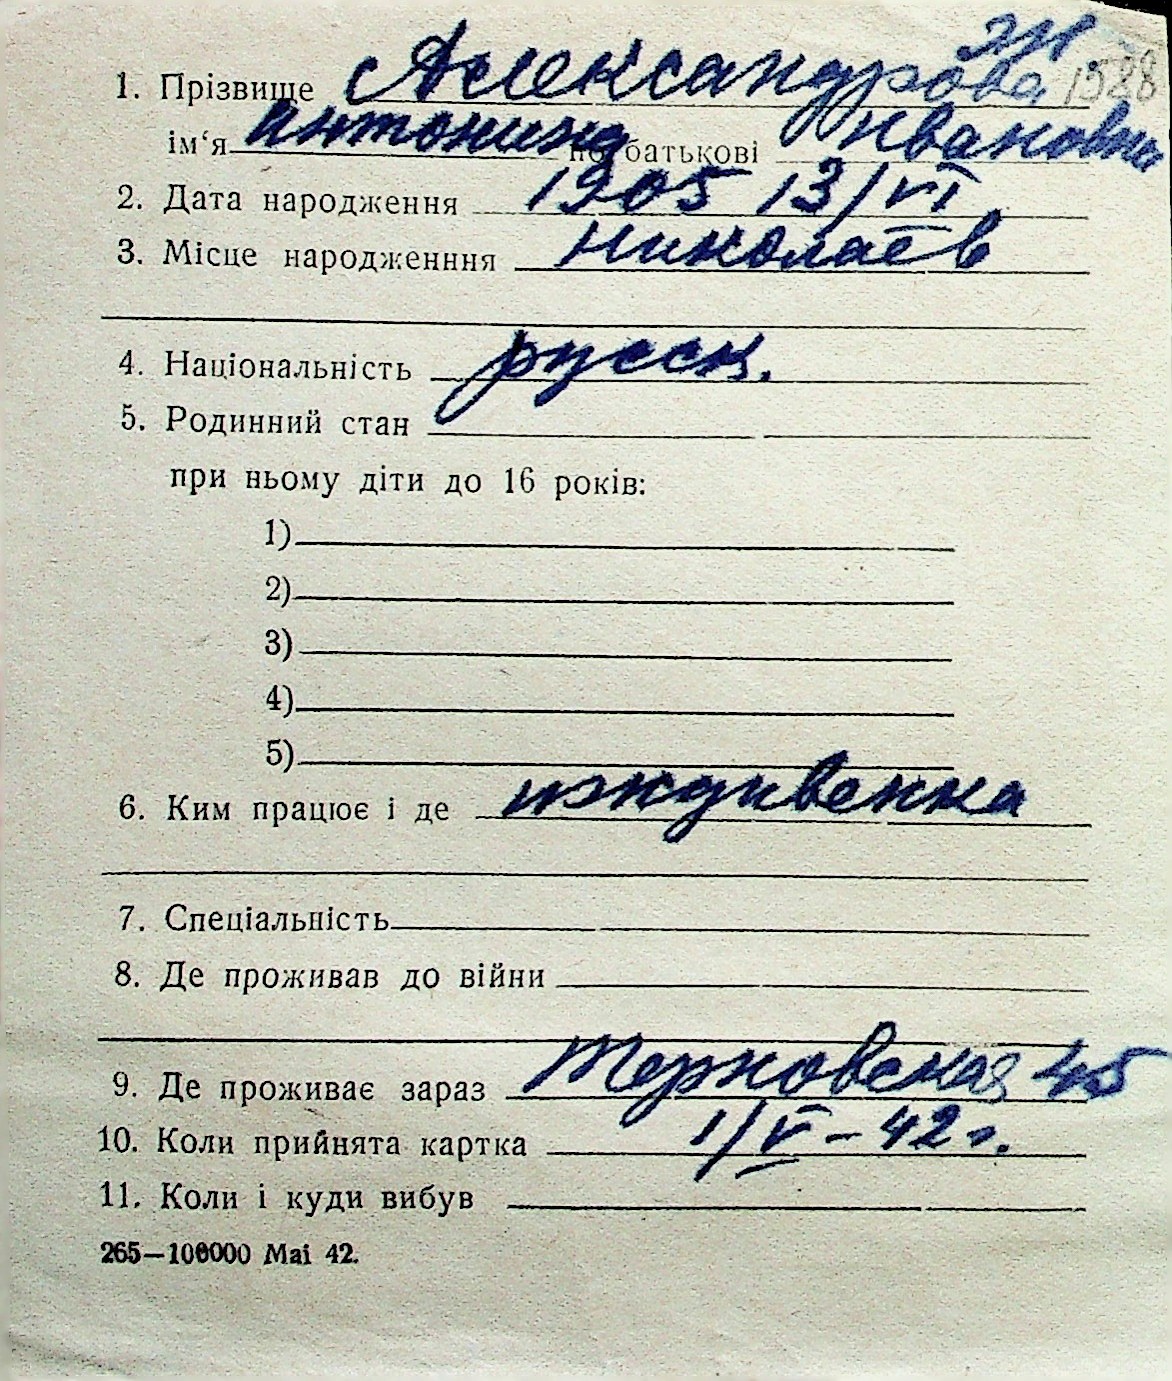 эк
1588
1. Прізвище Александрова
ім‘я Антонина по батькові Ивановна
2. Дата народження 1905 13/VI
3. Місце народженння Николаев
4. Національність русск.
5. Родинний стан
при ньому діти до 16 років:
1)
2)
3)
4)
5)
6. Ким працює і де иждивенка
7. Спеціальність
8. Де проживав до війни
9. Де проживає зараз Терновская 45
10. Коли прийнята картка 1/V – 42 г.
11. Коли і куди вибув
265—100000 Mai 42.